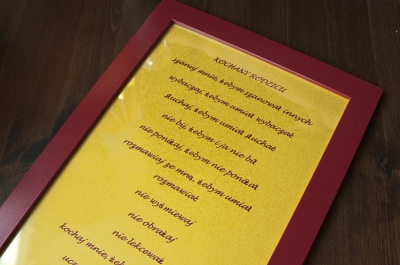 KOCHANY RODZICU
szanuj mnie, żebym szanował innych
wybaczaj, żebym umiał wybaczać
słuchaj, żebym umiał słuchać
nie bij, żebym i ja nie bił
nie poniżaj, żebym nie poniżał
rozmawiaj ze mną, żebym umiał
rozmawiać
nie wyśmiewaj
nie obrażaj
nie lekceważ
kochaj mnie,